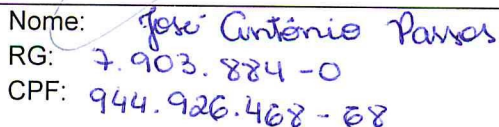 Nome: José Antônio Passos
RG: 7.903.884-0
CPF: 944.926.468-68